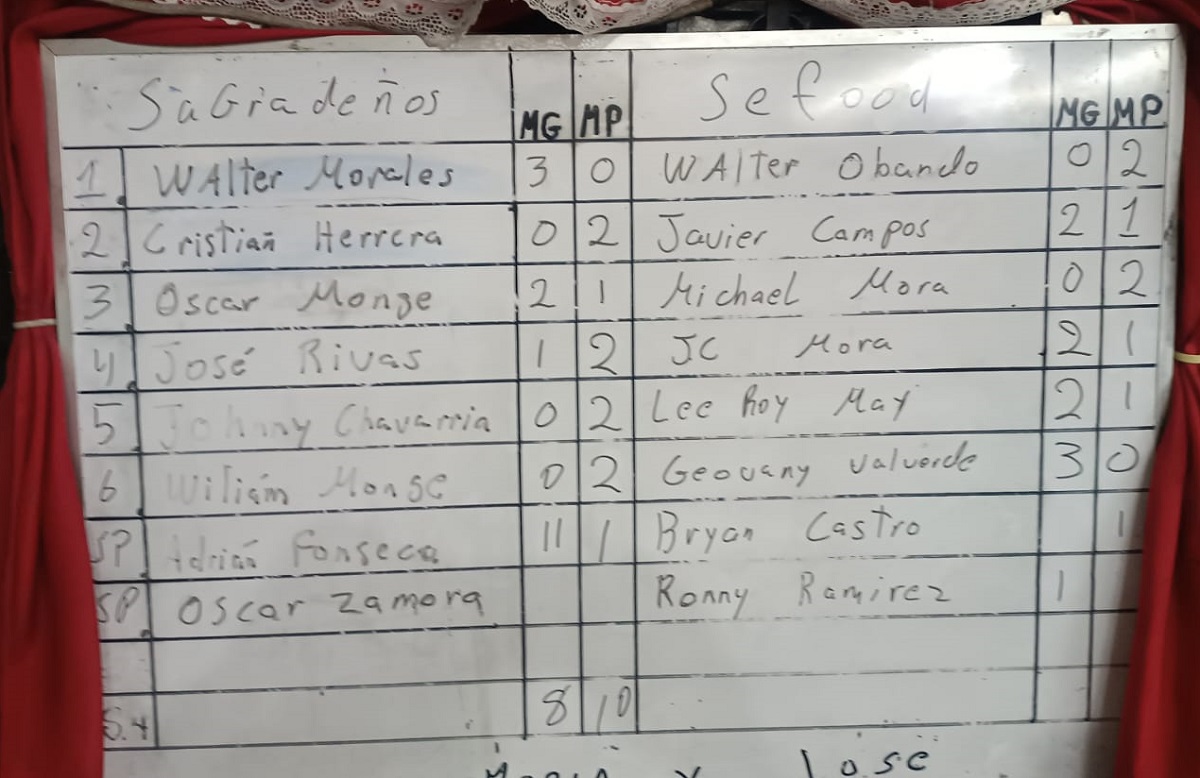 SaGradeños MG MP Sefood MG MP
1 WAlter Morales 3 0 WAlter Obando 0 2
2 Cristian Herrera 0 2 Javier Campos 2 1
3 Oscar Monge 2 1 Michael Mora 0 2
4 José Rivas 1 2 JC Mora 2 1
5 Johnny Chavarria 0 2 Lee Roy May 2 1
6 Wiliam Monge 0 2 Geovany Valverde 3 0
SP Adrian Fonseca 11 1 Bryan Castro 1
SP Oscar Zamora Ronny Ramirez 1
8 10
y José